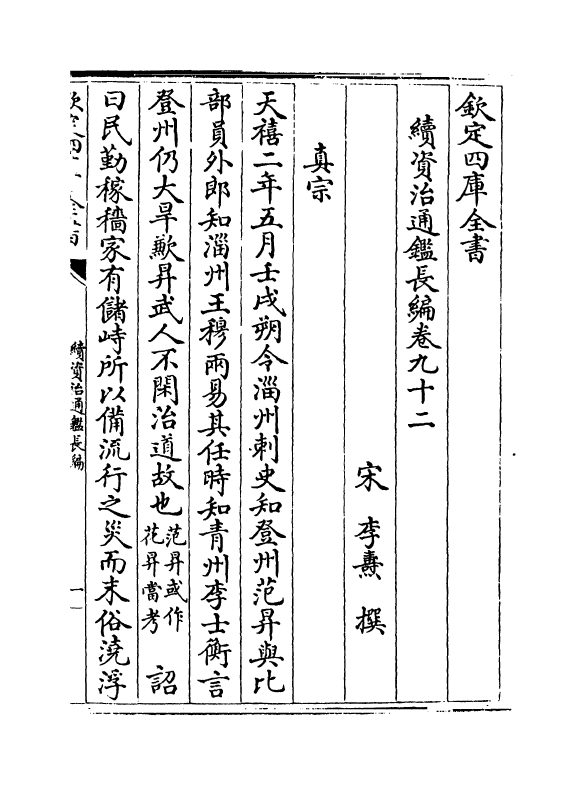 欽定四庫全書
續資治通鑑長編卷九十二
宋 李燾 撰
真宗
天禧二年五月壬戌朔令淄州刺史知登州范昇與比
部員外郎知淄州王穆兩易其任時知青州李士衡言
登州仍大旱歉昇武人不閑治道故也
范昇或作
花昇當考
詔
曰民勤稼穡家有儲峙所以備流行之災而末俗澆浮
續資治通鑑長編
一